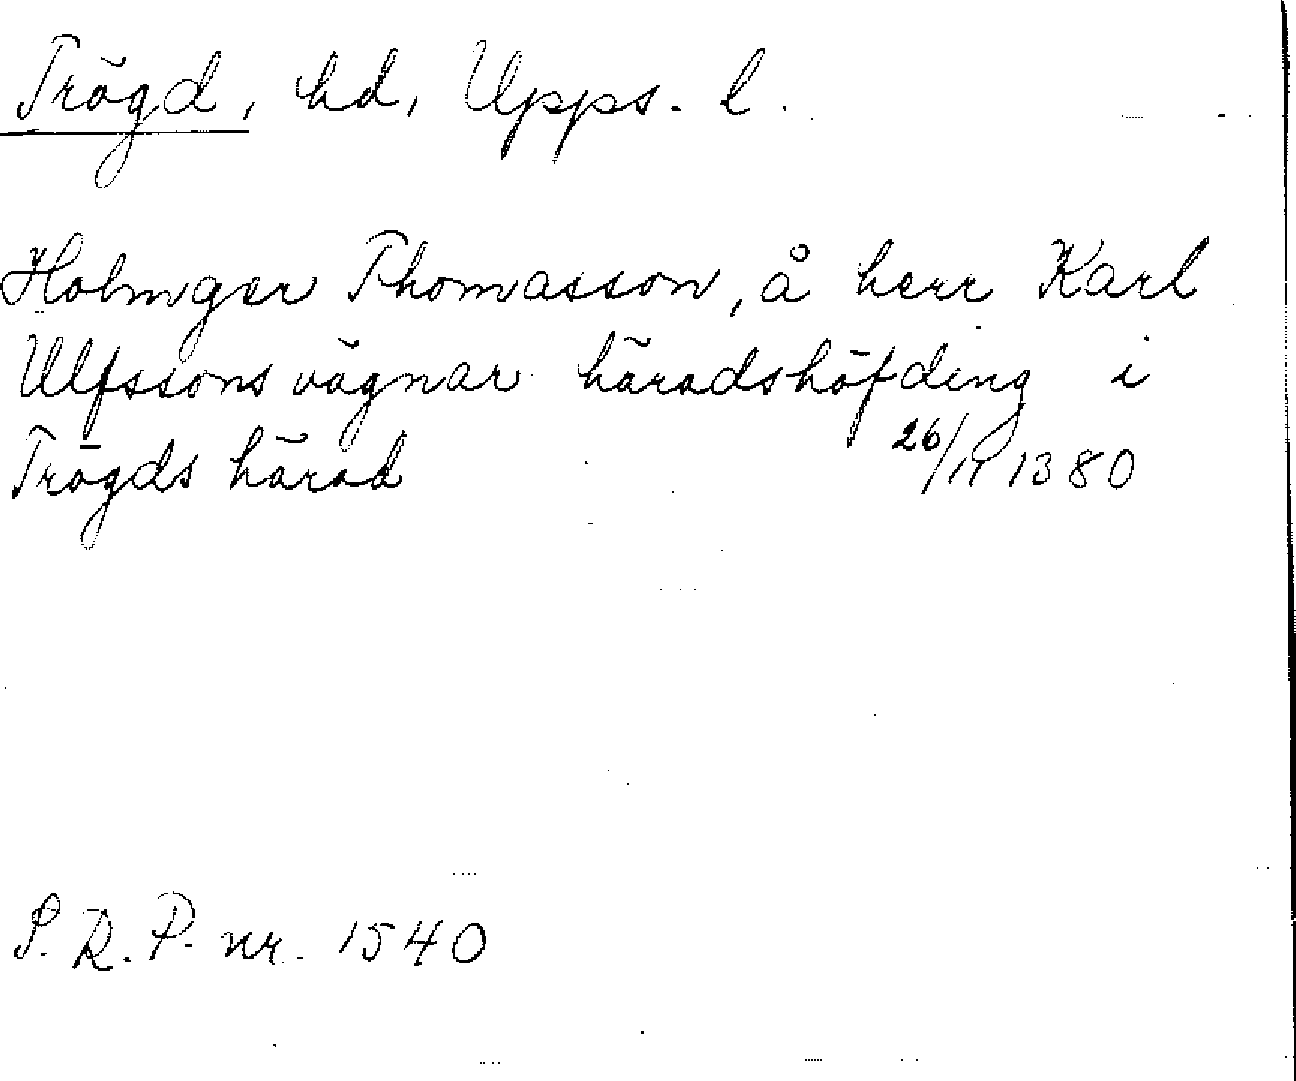 Trögd, hd, Upps. l.
Holmger Thomasson, å herr Karl
Ulfssons vägnar häradshöfding i
Trögds härad 26/11 1380
S. R. P. nr. 1540